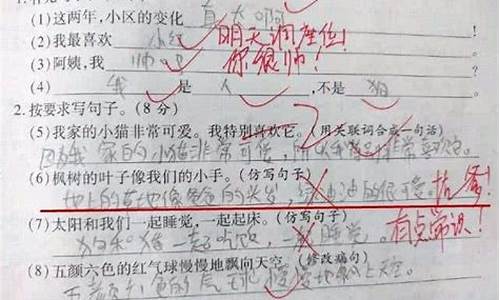 (1)这两年,小区的变化 真大啊
(2)我最喜欢 小红 明天调座位!
(3)阿姨,我 帅吧 你很帅!
(4) 我 是 人 ,不是 狗
2.按要求写句子。(8分)
(5)我家的小猫非常可爱。我特别喜欢它。(用关联词合成一句话)
因为我家的小猫非常可爱,所以我特别非常喜欢它。
(6)枫树的叶子像我们的小手。(仿写句子)
地上的草地像爸爸的头发,绿油油的很可爱。 找爹!
(7)太阳和我们一起睡觉,一起起床。(仿写句子)
狗和猪一起吃饭,一起睡觉。 有点常识!
(8)五颜六色的红气球慢慢地飘向天空。(修改病句)
五颜六色的气球慢慢地飘上天空。